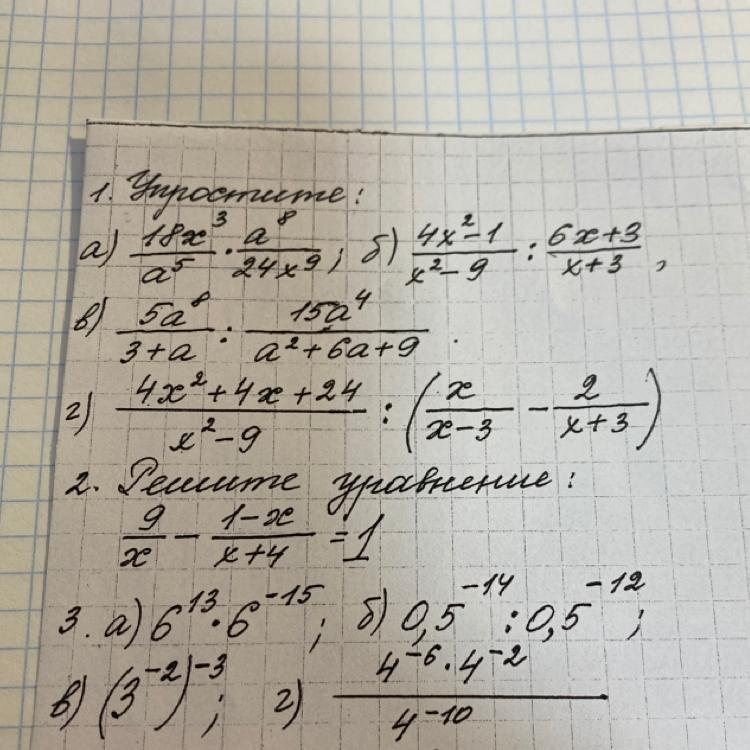 1. Упростите:
а) 18x³/a⁵ · a⁸/24x⁹; б) 4x²-1/x²-9 : 6x+3/x+3,
в) 5a⁸/3+a : 15a⁴/a²+6a+9.
г) 4x²+4x+24/x²-9 : (x/x-3 - 2/x+3)
2. Решите уравнение:
9/x - 1-x/x+4 = 1
3. а) 6¹³·6⁻¹⁵; б) 0,5⁻¹⁴:0,5⁻¹²;
в) (3⁻²)⁻³; г) 4⁻⁶·4⁻²/4⁻¹⁰